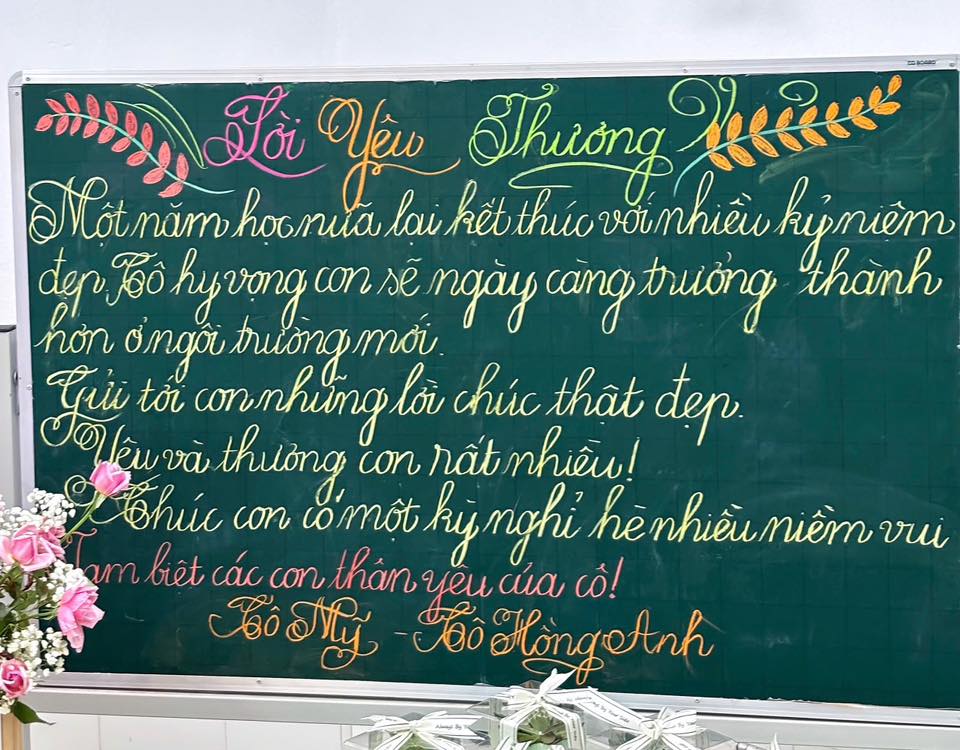 Lời Yêu Thương
Một năm học nữa lại kết thúc với nhiều kỷ niệm
đẹp. Cô hy vọng con sẽ ngày càng trưởng thành
hơn ở ngôi trường mới.
Gửi tới con những lời chúc thật đẹp.
Yêu và thương con rất nhiều!
Chúc con có một kỳ nghỉ hè nhiều niềm vui
Tạm biệt các con thân yêu của cô!
Cô Mỹ - Cô Hồng Anh